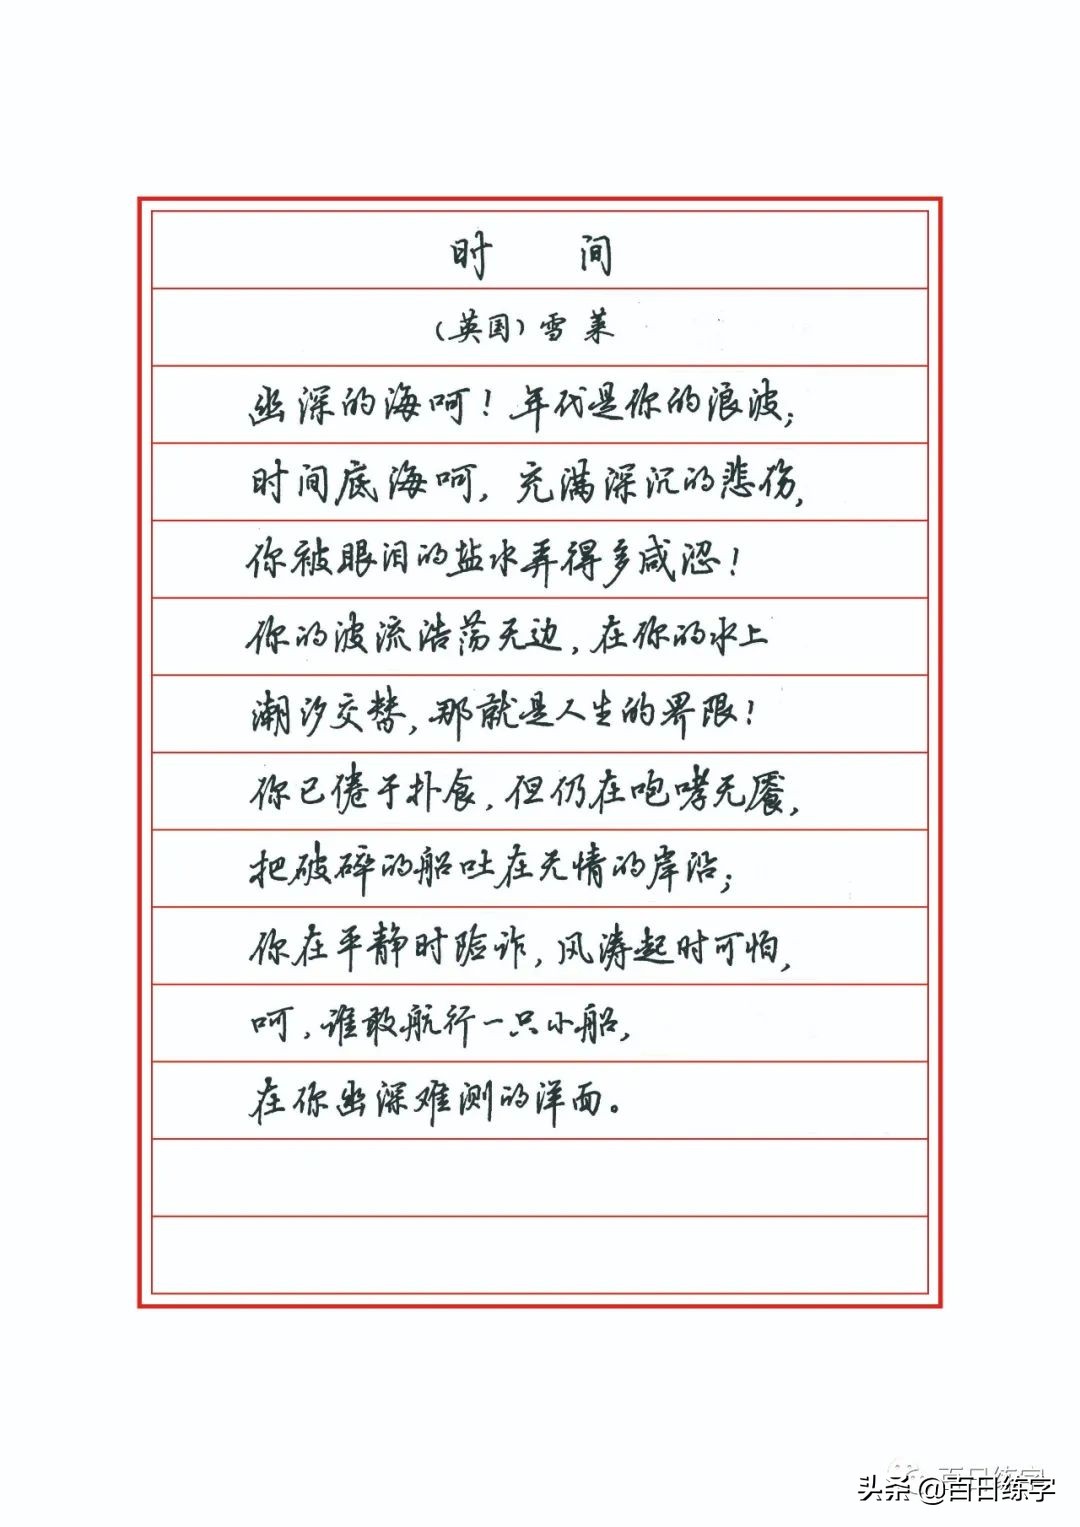 时 间
（英国）雪莱
幽深的海呵！年代是你的浪波；
时间底海呵，充满深沉的悲伤，
你被眼泪的盐水弄得多咸涩！
你的波流浩荡无边，在你的水上
潮汐交替，那就是人生的界限！
你已倦于扑食，但仍在咆哮无餍，
把破碎的船吐在无情的岸沿；
你在平静时险诈，风涛起时可怕，
呵，谁敢航行一只小船，
在你幽深难测的洋面。
百日练字
头条@百日练字